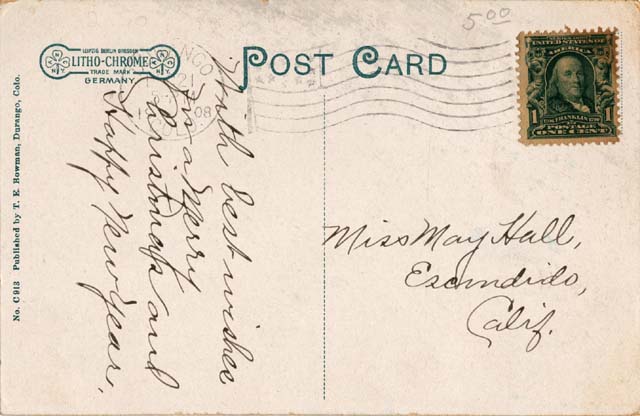 5.00
LEIPZIG BERLIN DRESDEN
LITHO-CHROME
TRADE MARK
GERMANY
POST CARD
NGO
21
08
UNITED STATES OF
AMERICA
FRANKLIN
1 POSTAGE 1
ONE CENT
With best wishes
for a Merry
Christmas and
Happy New Year.
Miss May Hall,
Escondido,
Calif.
No. C 913 Published by T. E. Bowman, Durango, Colo.